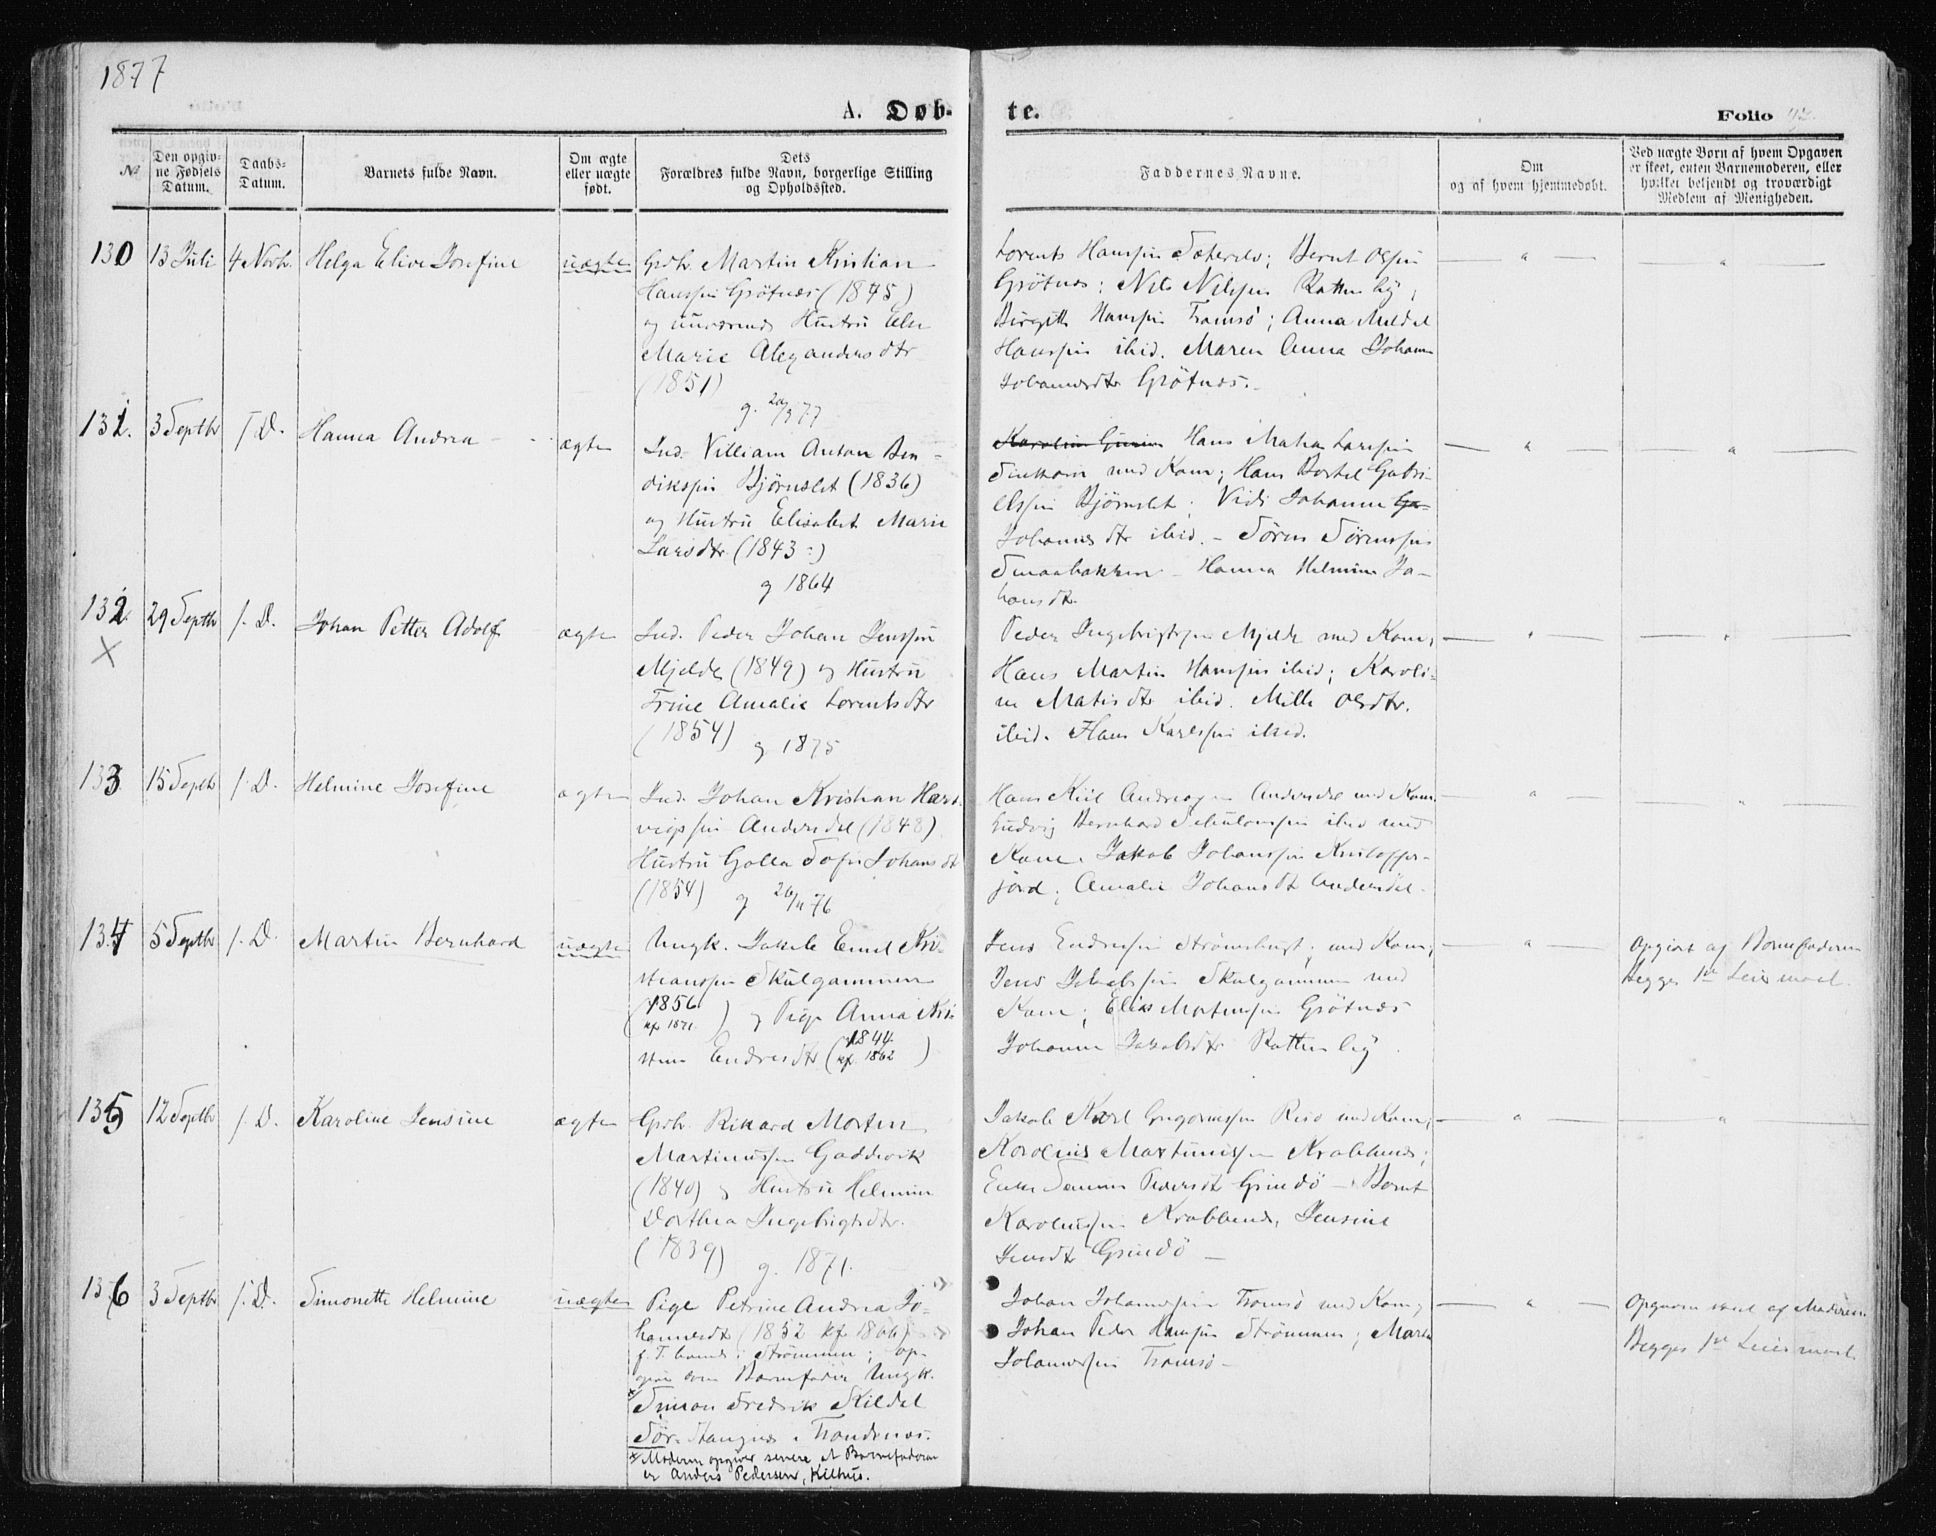 1877
A. Døb-
te.
Folio
№
Den opgiv-
ne Fødsels
Datum.
Daabs-
Datum.
Barnets fulde Navn.
Om ægte
eller uægte
født.
Dets
Forældres fulde Navn, borgerlige Stilling
og Opholdssted.
Faddernes Navne.
Om
og af hvem hjemmedøbt.
Ved uægte Børn af hvem Opgaven
er skeet, enten Barnemoderen, eller
hvilket betjendt og troværdigt
Medlem af Menigheden.
130 13 Juli 4 Novbr. Helga Elive Josefine uægte
Grdbr. Martin Kristian
Hanssen Grötnæs (1845)
og nuværende Hustru Else
Marie Alexandersdtr
(1851)
Lorents Hanssen Sæterelv; Bernt Olsen
Grötnæs; Nils Nilssen Kattenby;
Birgitte Hanssen Tromsö; Anna
Hanssen ibid. Maren Anna Johann
Johannesdtr Grötnæs.
131. 3 Septbr f.D. Hanna Andrea ægte
g. 77
Ind. Villiam Anton Ben-
dikssen Björnslet (1836)
og Hustru Elisabet Marie
Larsdtr (1843)
g 1864
Hans Larssen
med Kone; Hans Bertel Gabri-
elssen Björnslet; Johanna
Johannesdtr ibid. - Sören Sörenssen
Smaabakken - Hanna Helmine Jo-
hansdtr
132 29 Septbr f.D. Johan Petter Adolf ægte
X
Ind. Peder Johan Jenssen
Mjelde (1849) og Hustru
Trine Amalie Lorentsdtr
(1854) g 1875
Peder Ingebrigtssen Mjelde med Kone,
Hans Martin Hanssen ibid; Karoli-
ne Matisdtr ibid. Mille Olsdtr.
ibid. Hans Karlssen ibid.
133 15 Septbr f.D. Helmine Josefine ægte
Ind. Johan Kristian Hart-
vigssen Andersdal (1848)
Hustru Golla Sofie Johansdtr
(1854) g 76
Hans Kiil Andreassen Andersdal med Kone.
Ludvig Bernhard ibid med
Kone. Jakob Johanssen Kristoffer-
jord; Amalie Johansdt Andersdal.
134 5 Septbr f.D. Martin Bernhard uægte
Ungk. Jakob Emil Kri-
stianssen Skulgammen
(1856 kf 1871.) og Pige Anna Kri
stine Endresdtr (1844 kf. 1862)
Jens Endressen Strømslugt; med Kone;
Jens Jakobssen Skulgammen med
Kone; Elias Mortenssen Grötnæs
Johanna Jakobsdtr Kattenby.
Opgivet af Barnefaderen
Begges 1ste Leiermaal.
135 12 Septbr f.D. Karoline Jensine ægte
Grdbr. Rikard Morten
Martinussen Gaddevik
(1840) og Hustru Helmine
Dorthea Ingebrigtsdtr.
(1839) g. 1871.
Jakob Karl Gregoriussen Risö med Kone;
Karolius Martinussen Krabbenæs;
Pedersdt Grindö - Bernt
Karoliussen Krabbenæs, Jensine
Jensdt Grindö -
136 3 Septbr f.D. Simonette Helmine uægte
Pige Petrine Andrea Jo-
hannesdt (1852 kf. 1866)
f. T. hjem i Strömmen; op-
given som Barnefader Ungk.
* Simon Fredrik Kildal
Sör-Stangnæs i Trondenæs.
* Moderen opgiver senere at Barnefaderen
er Anders Pedersen, Kilhus.
Johan Johannessen Tromsö med Kone;
Johan Peder Hanssen Strömmen; Marta
Johannessen Tromsö -
af Moderen
Begges 1ste Leiermaal